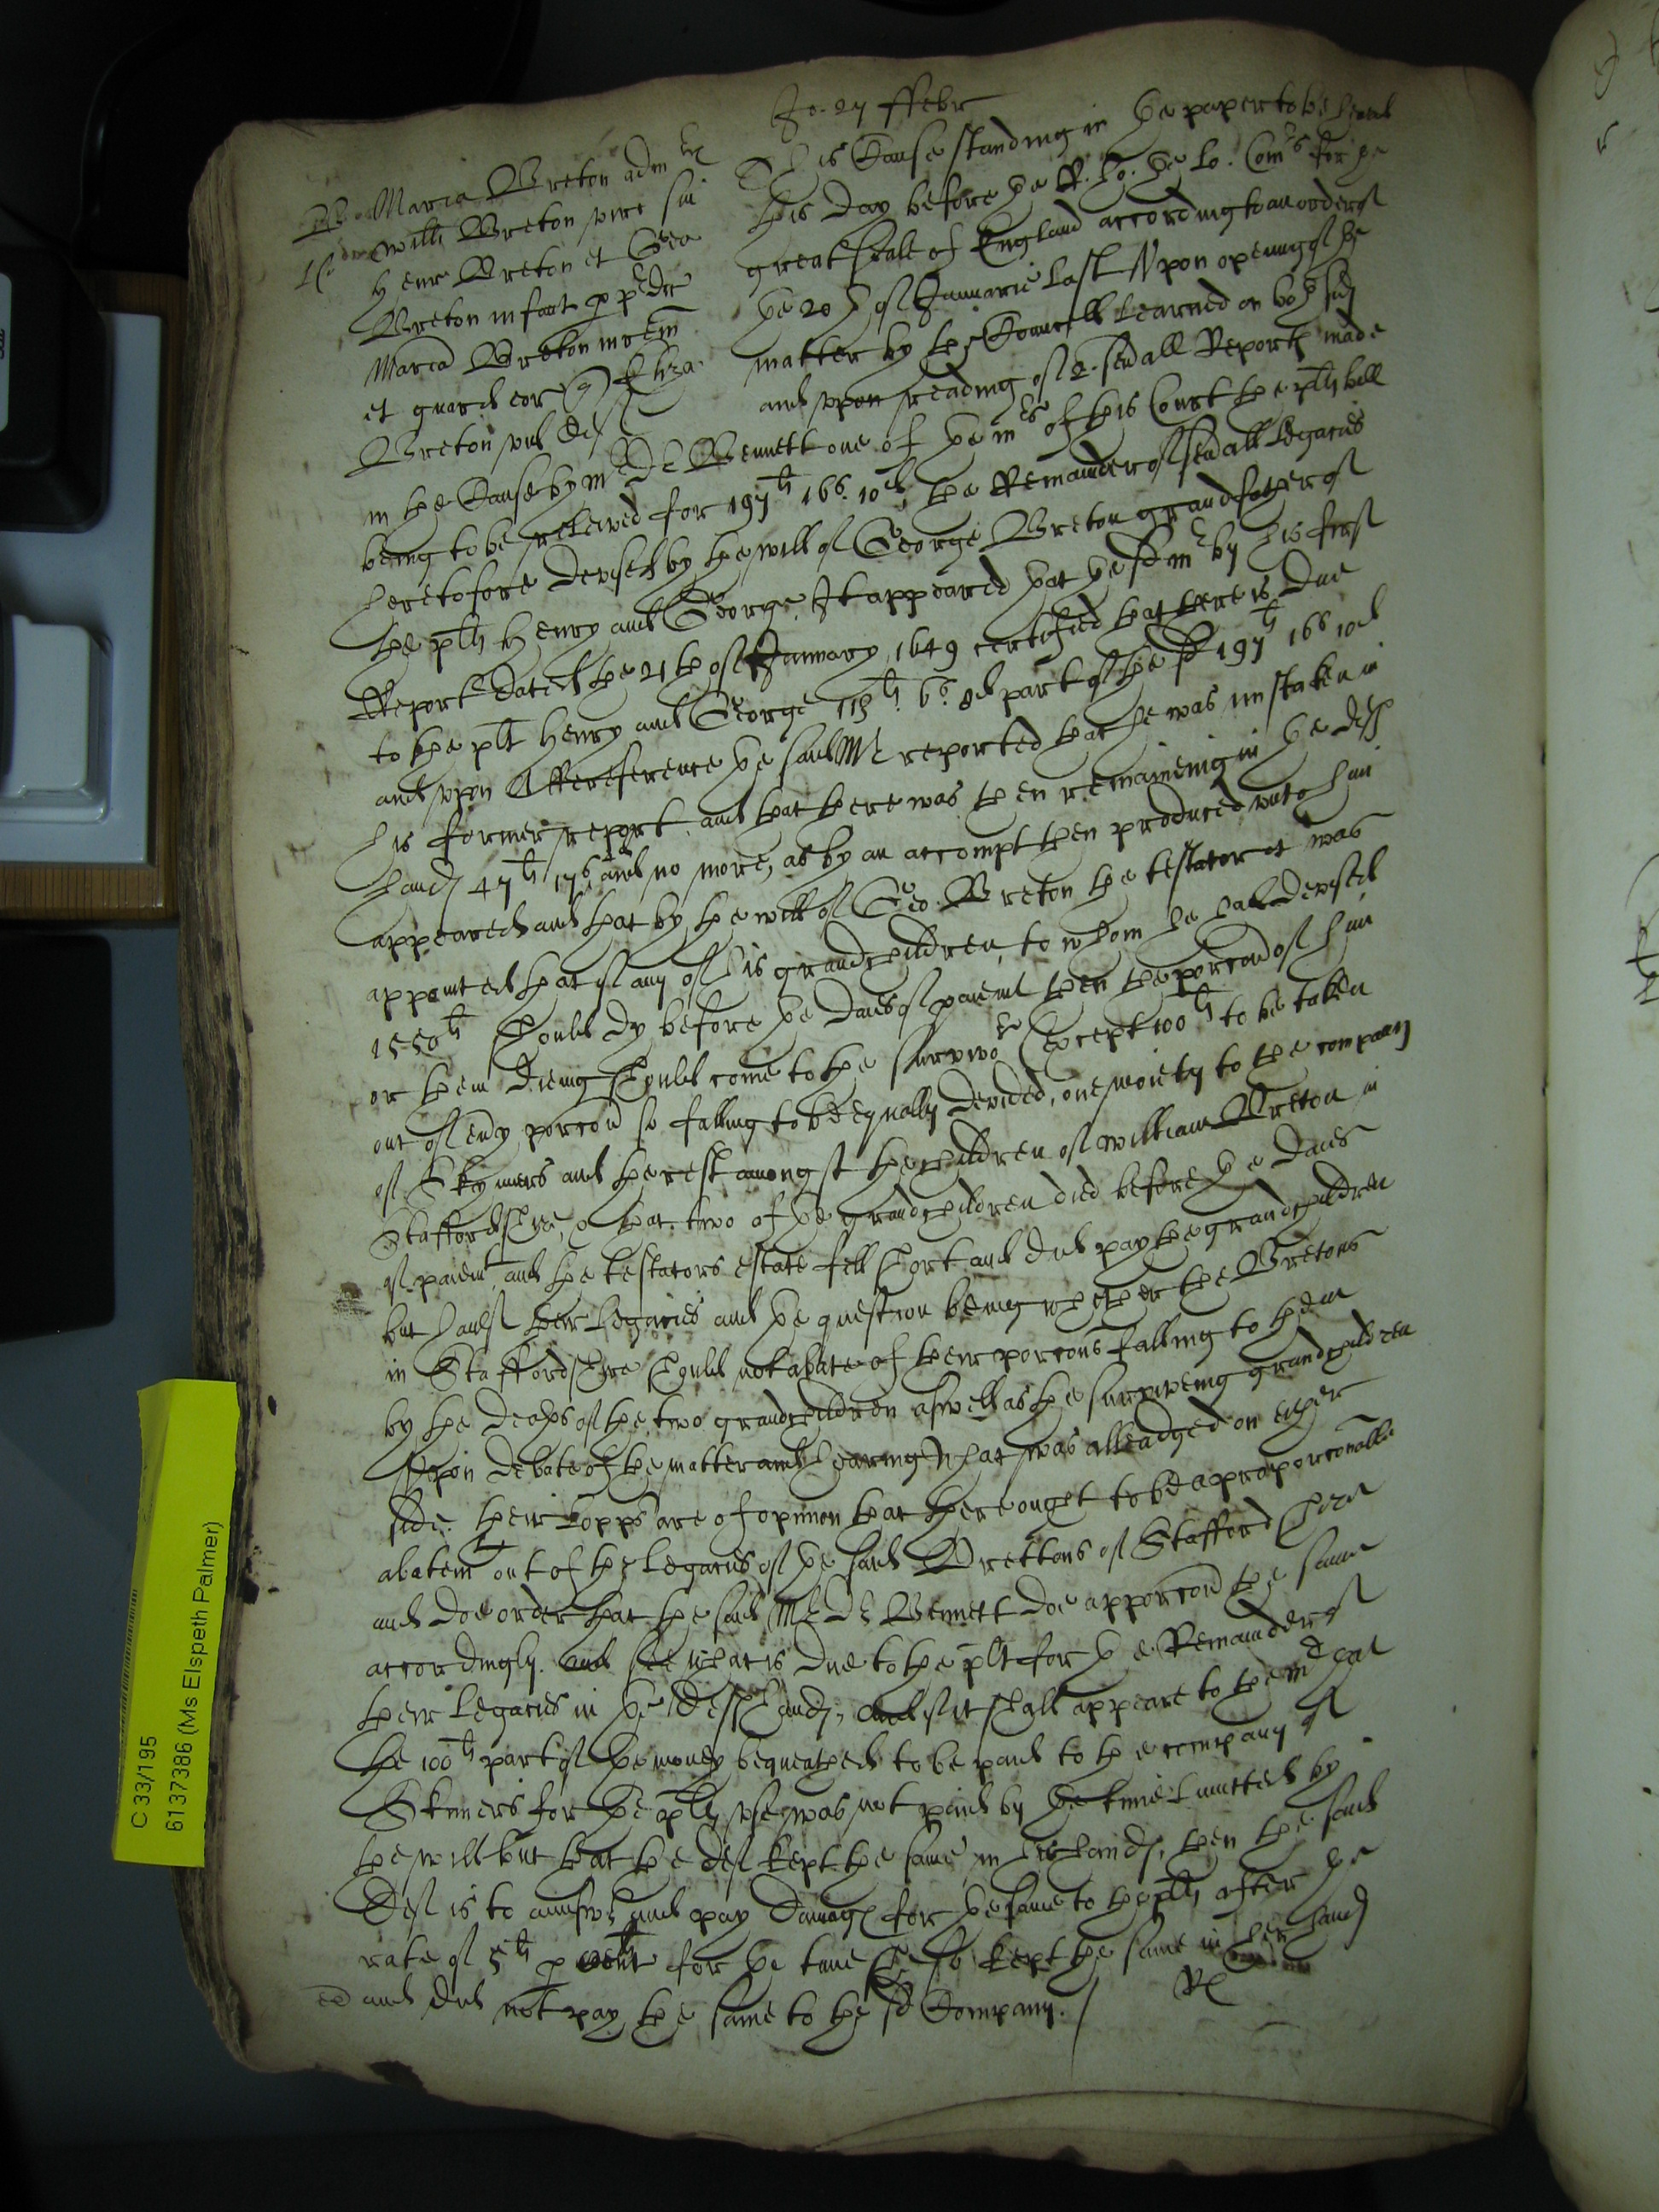 27 ffebr
Maria Breton adm
Willi Breton viri sui
Henr Breton et Geo
Breton infant p
Maria Breton mrem
et guard eor Eliza
Breton vid Def
This Cause standing in the paper to be heard
this day before the R. ho. the lo. Comrs for the
great seale of England according to an order of
the 20th of Januarie last Upon opening of the
matter by the Councell Learned on both sides
and upon reading of 2. seuall Reports made
in the Cause by mr Dr Bennett one of the mrs of this Court the plts bill
being to be releived for 197li 16s. 10d, the Remainder of seuall Legacies
heretofore devised by the will of George Breton grandfather of
the plts Henry and George, It appeared that the sd mr by his first
Report dated the 21th of January 1649 certifyed that there is due
to the plts Henry and George li 6s. 8d part of the sd 197li 16s 10d
and upon a Rereference the said Mr reported that he was mistaken in
his former report, and that there was then remaineing in the defts
hands 47li 17s and no more, as by an accompt then produced unto him
appeared and that by the will of Geo. Breton the testator it was
appointed that if any of his grandchildren, to whom he had devised
1550li should dy before the daies of paiemt then the porcon of him
or them dieing should come to the survivor (except 100li to be taken
out of eury porcon so falling to be equally devided, one moiety to the company
of Skynners and the rest amongst the children of William Breton in
Staffordshire, that two of the grandchildren died before the daies
of paiemt, and the testators estate fell short and did pay the grandchildren
but halfe their Legacies and the question being whether the Bretons
in Staffordshire should not abate of their porcons falling to them
by the deaths of the two grandchildren aswell as the surviveing grandchildren
Upon debate of the matter and hearing what was alleadged on either
side. their Lopps are of opinion that there ought to be a proporconable
abatemt out of the Legacies of the said Brettons of Staffordshire
and doe order that the said Mr Dr Bennett doe apporcon the same
accordingly. and see what is due to the plt for the Remainder of
their Legacies in the defts hands, and if it shall appeare to them that
the 100li part of the money bequeathed to be paid to the company of
Skinners for the plts use was not paid by the time Limitted by
the will but that the def kept the same in his hands, then the said
Def is to answr and pay damages for the same to the plts after the
rate of 5li p cent for the time she so kept the same in her hands
and did not pay the same to the sd Company.
C 33/195
6137386 (Ms Elspeth Palmer)